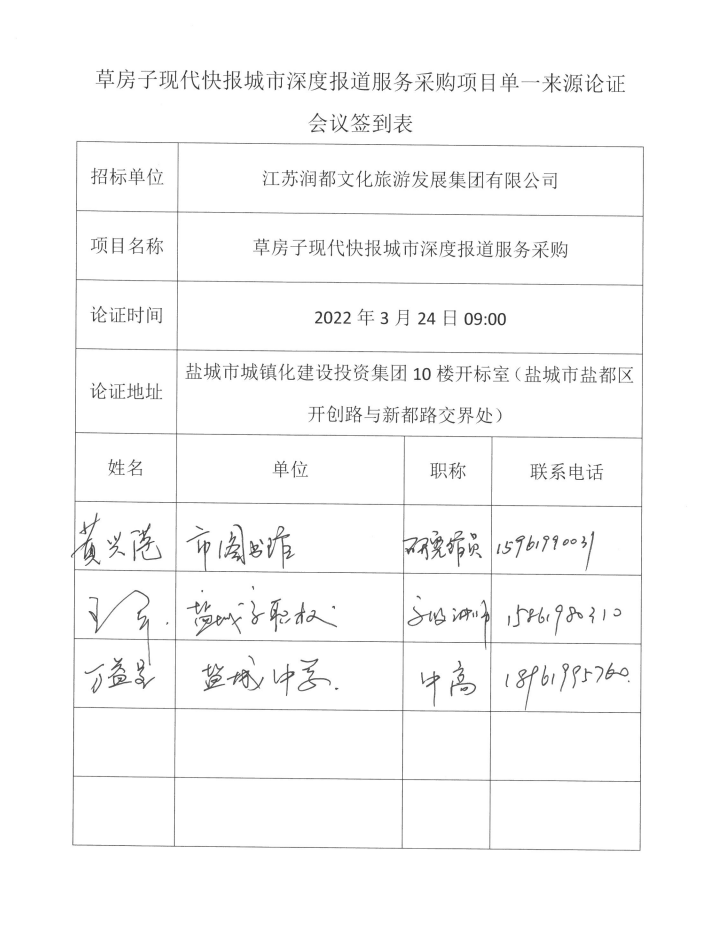 草房子现代快报城市深度报道服务采购项目单一来源论证
会议签到表
招标单位 江苏润都文化旅游发展集团有限公司
项目名称 草房子现代快报城市深度报道服务采购
论证时间 2022 年 3 月 24 日 09:00
论证地址 盐城市城镇化建设投资集团 10 楼开标室（盐城市盐都区
开创路与新都路交界处）
姓名 单位 职称 联系电话
黄兴港 市图书馆 研究馆员 15961990031
盐城 高级讲师 15861980310
万益 盐城中学. 中高 18961995760.